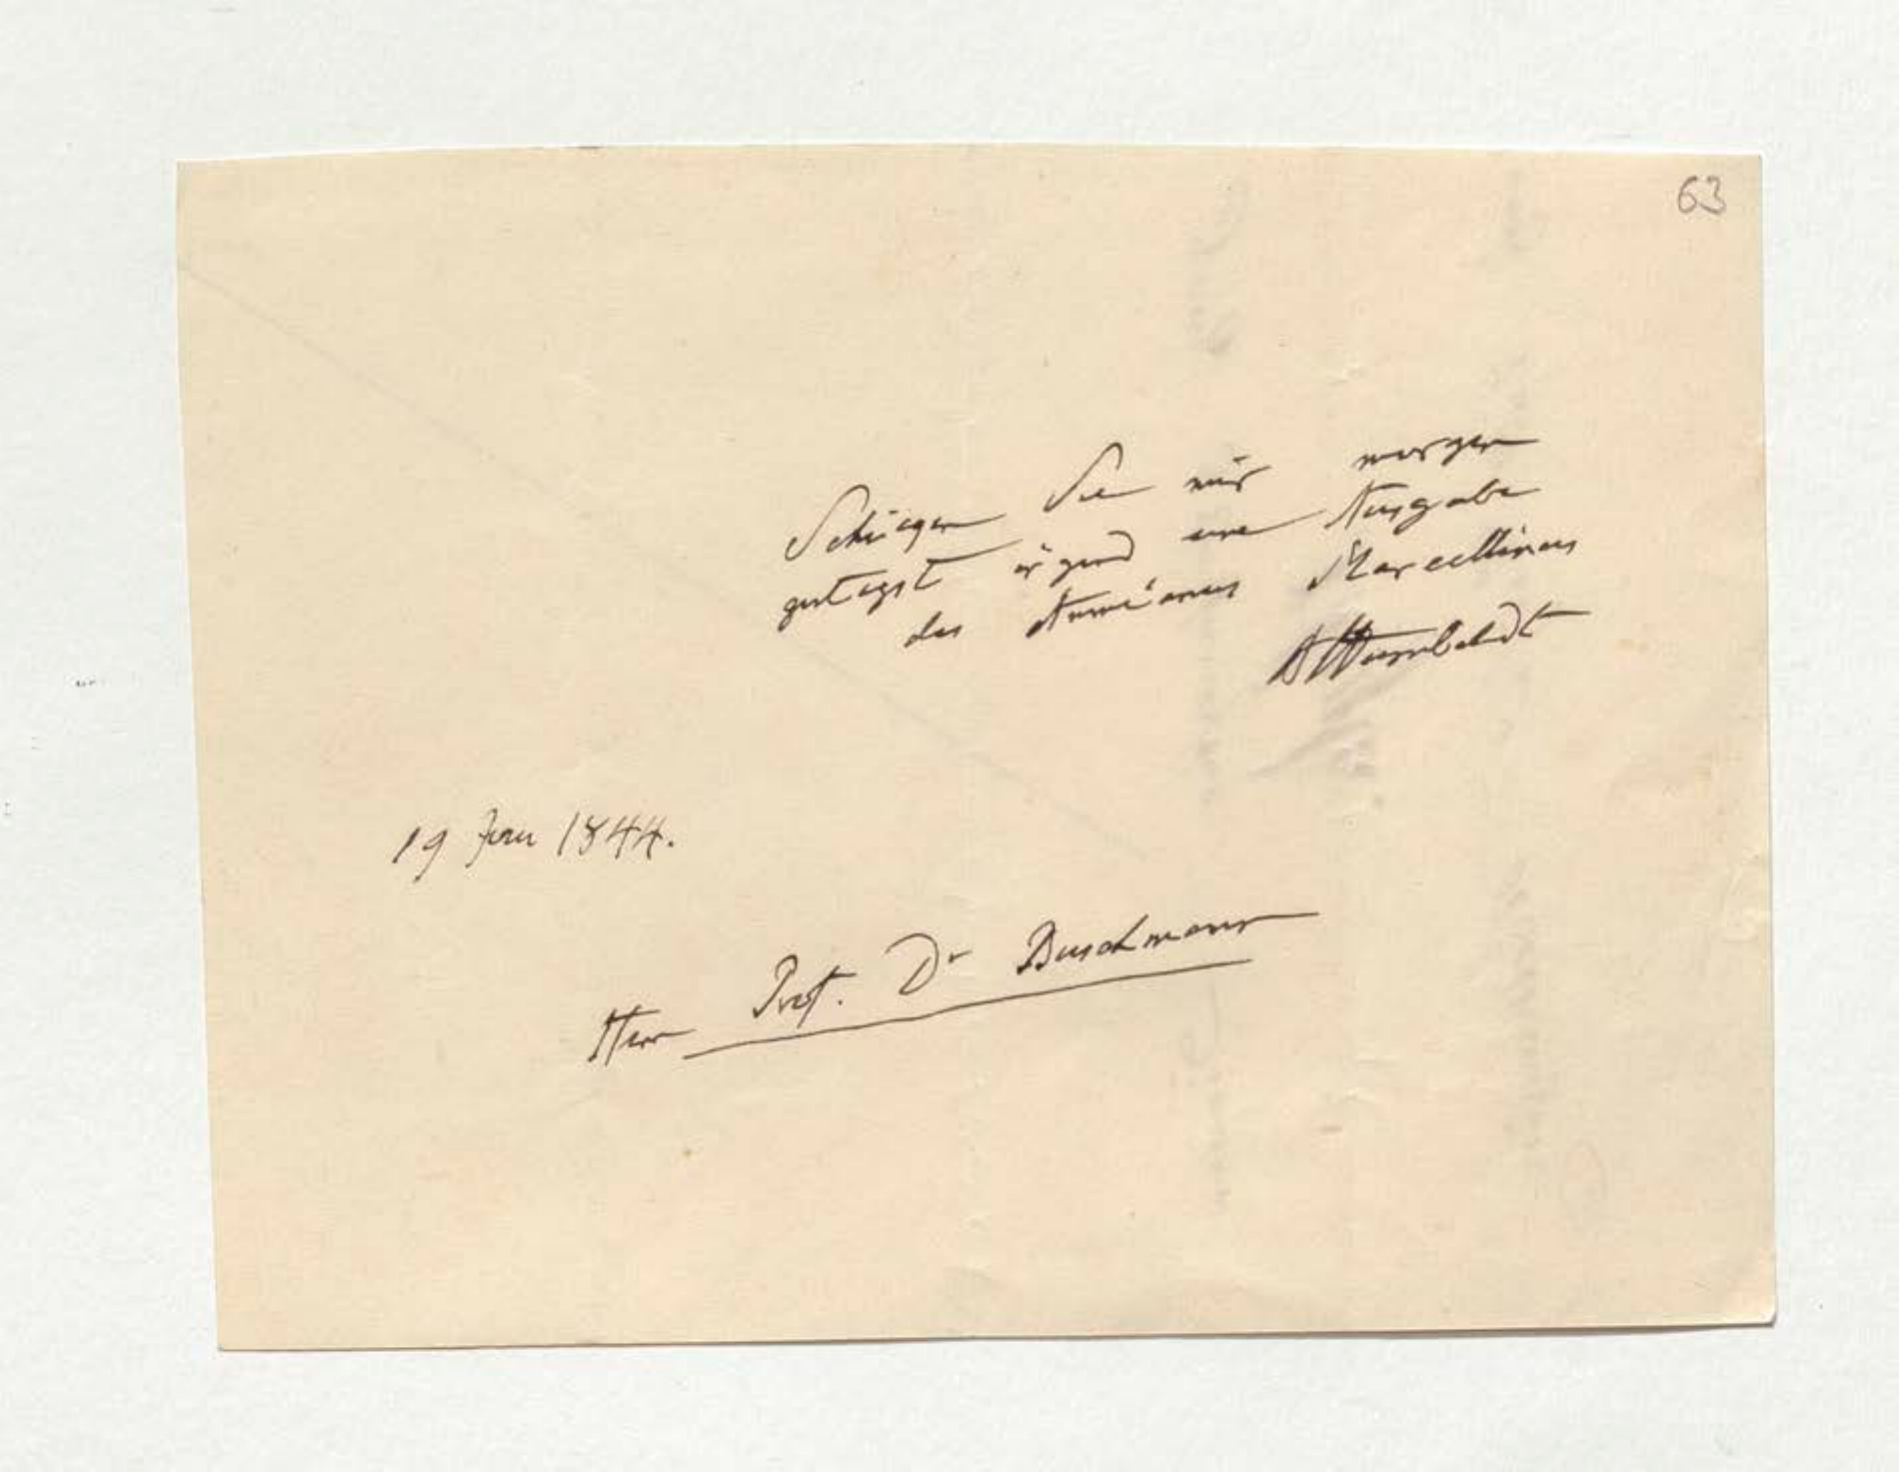 63
Schicken Sie mir morgen
gütigst irgend eine Ausgabe
des Ammianus Marcellinus
AHumboldt
19 Juni 1844.
Herr Prof. Dr Buschmann